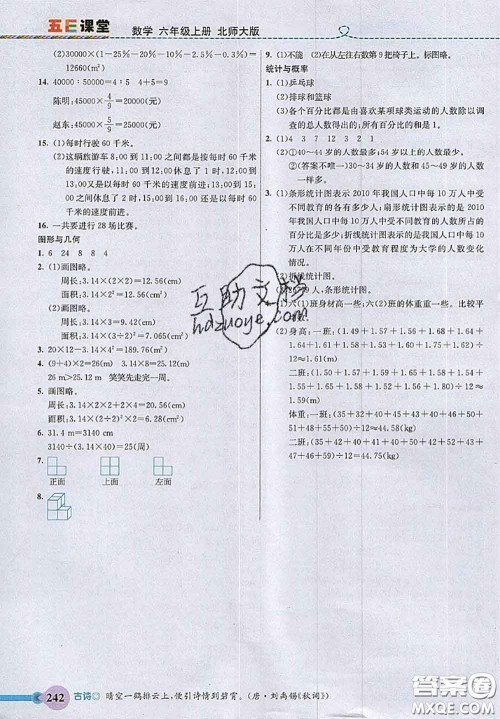 五E课堂 数学 六年级上册 北师大版
(2)30000×(1-25%-20%-5%)×(1-20%)=
12660(m²)
14. 40000:50000=4:5 4+5=9
陈明:45000×4/9=20000(元)
赵东:45000×5/9=25000(元)
15. (1)每时行驶 60 千米。
(2)这辆旅游车 8:00到 11:00之间都是按每时 60 千
米的速度行驶,11:00到 12:00休息了 1 时,
12:00到 13:00之间又是按每时 60 千米的速
度前进,13:00到 15:00之间休息了 2 时,15:00
到 16:00之间是按每时 60 千米的速度前进。
16. 一共要进行 28 场比赛。
图形与几何
1. 6 24 8 8 4
2. (1)画图略。
周长:3.14×(2×2)=12.56(cm)
面积:3.14×2²=12.56(cm²)
(2)画图略。
周长:3.14×2=6.28(cm)
面积:3.14×(2÷2)²=3.14(cm²)
3. 20×12-3.14×4²=189.76(m²)
4. (9+4)×2=26(m) 3.14×8=25.12(m)
26 m>25.12 m 笑笑先走完一周。
5. 画图略。
周长:3.14×2×2+2×2=16.56(cm)
面积:3.14×(2÷2)²×2+2×2=10.28(cm²)
6. 31.4 m=3140 cm
3140÷(3.14×40)=25(周)
7.
正面 上面 左面
8.
9. (1)不能 (2)在从左往右数第 9 把椅子上。标图略。
统计与概率
1. (1)乒乓球
(2)排球和篮球
(3)各个百分比都是由喜欢某项球类运动的人数除以调
查的总人数得出来的,所有的百分比之和是 1。
2. (1)4 7 12 13 8 4 2 37 38 54
(2)①40~44 岁的人数最多,54 岁以上的人数最少。
②(答案不唯一)35~39 岁的人数和 45~49 岁的人数
差不多。
3. (1)条形统计图表示 2010 年我国人口中每 10 万人中受
不同教育的人数是多少;扇形统计图表示 2010 年我
国人口中每 10 万人中受不同教育的人数所占的百分
比;折线统计图表示在不同年份中我国人口中每 10
万人在不同年份中受教育程度为大学的人数变化
情况。
(2)折线统计图。
(1)六(1)班身材高一些;六(2)班的体重重一些。比较平
(2)身高:一班:(1.49+1.51+1.56+1.58+1.64+
÷12≈1.59(m)
二班:(1.50+1.54+1.55+1.57+1.61+
÷12≈1.51(m)
体重:一班:
÷12≈42.15(kg)
二班:
÷12=44.75(kg)
互助文档
hdzuoye.com
242 古诗 晴空一鹤排云上,便引诗情到碧霄。(唐·刘禹锡《秋词》)
答案圈
MXQE.COM